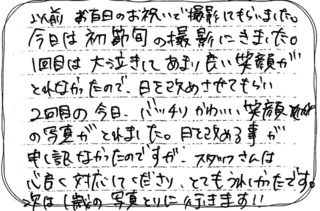 以前 お百日のお祝いで撮影にもらいました。
今日は初節句の撮影にきました。
1回目は大泣きしてあまり良い笑顔が
とれなかったので、日を改めさせてもらい
2回目の今日、バッチリかわいい笑顔
の写真がとれました。日を改める事が
申し訳なかったのですが、スタッフさんは
心良く対応してくださり、とてもうれしかったです。
次は1歳の写真とりに行きます!!